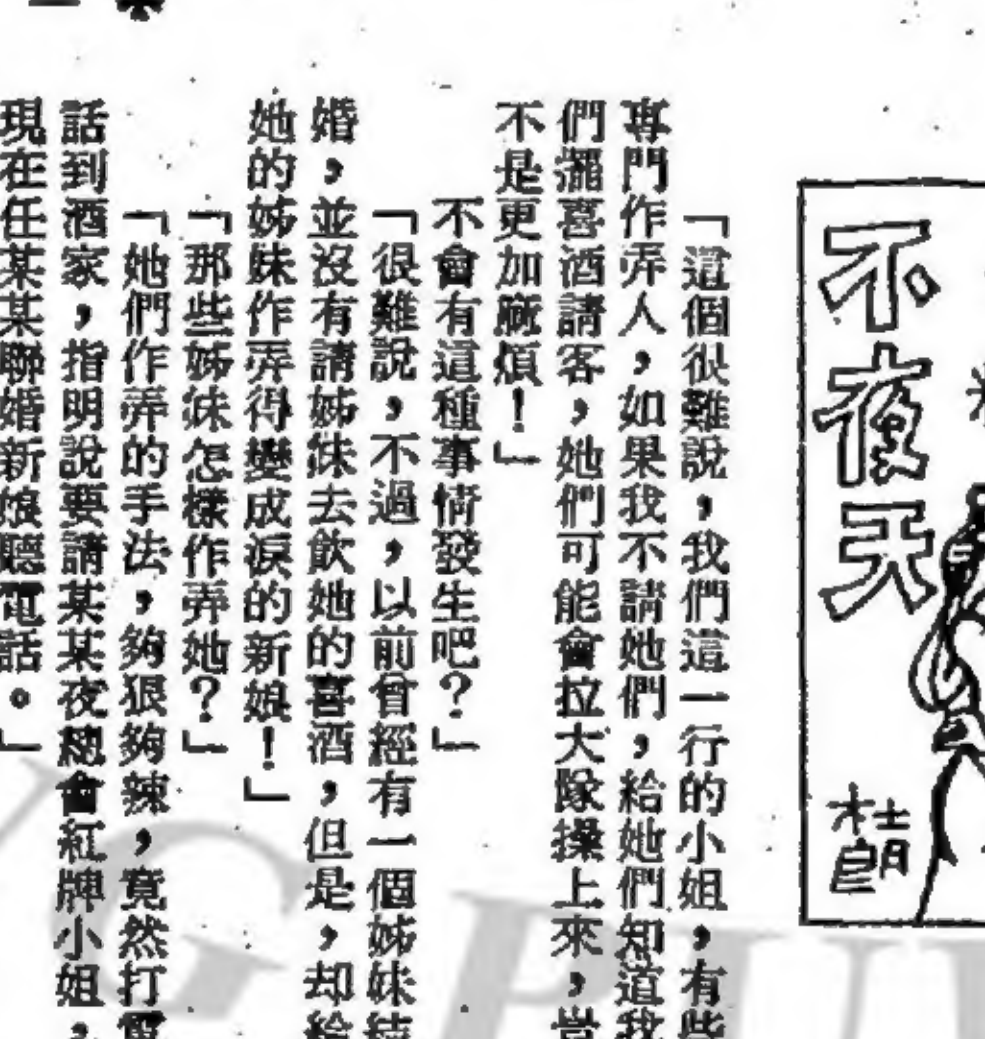 不夜天
杜良
「這個很難說，我們這一行的小姐，有些
專門作弄人，如果我不請她們，給她們知道我
們擺喜酒請客，她們可能會拉大隊操上來，豈
不是更加麻煩！」
不會有這種事情發生吧？」
「很難說，不過，以前曾經有一個姊妹結
婚，並沒有請姊妹去飲她的喜酒，但是，却給
她的姊妹作弄得變成淚的新娘！」
「那些姊妹怎樣作弄她？」
「她們作弄的手法，夠狠夠辣，竟然打電
話到酒家，指明說要請某某夜總會紅牌小姐，
現在任某某聯婚新娘聽電話。」